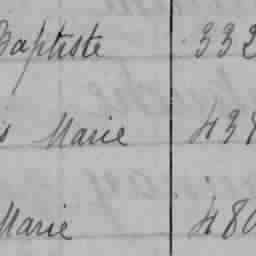 Baptiste 332
s Marie 439
Marie 480